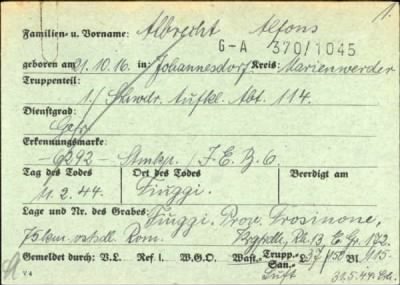 1.
Familien- u. Vorname: Albrecht Alfons
G-A 370/1045
geboren am 21.10.16 in: Johannesdorf Kreis: Marienwerder
Truppenteil:
1./ Schwdr. Aufkl. Abt. 114.
Dienstgrad:
Gefr.
Erkennungsmarke:
-6292- Stmkp. / J.E.B. 6.
Tag des Todes Ort des Todes Beerdigt am
11.2.44. Fiuggi.
Lage und Nr. des Grabes: Fiuggi. Prov. Frosinone,
75 km ostsdl. Rom. R. 13, E. Gr. 172.
Gemeldet durch: V.L. Ref I. W.G.O. Wast. Trupp. San. L 37/150 Bl. 115.
V 4 31.5.44.